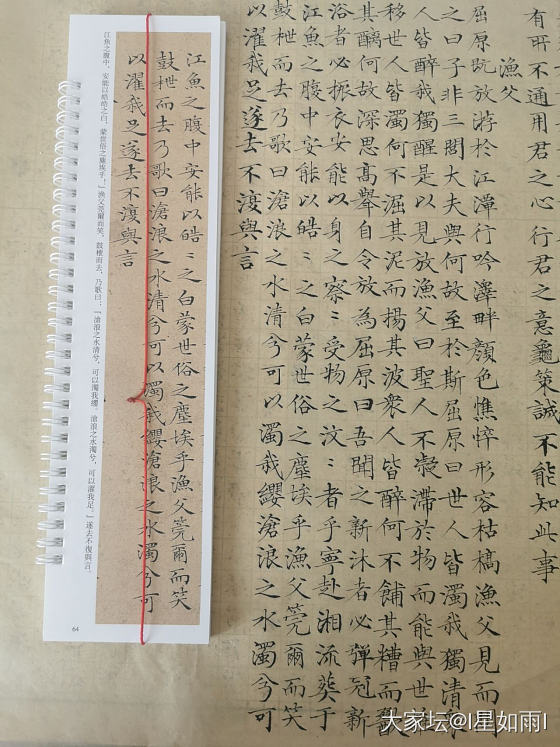 有所不通用君之心行君之意龜策誠不能知此事
漁父
屈原既放游於江潭行吟澤畔顏色憔悴形容枯槁漁父見而
之曰子非三閭大夫與何故至於斯屈原曰世人皆濁我獨清
人皆醉我獨醒是以見放漁父曰聖人不凝滯於物而能與世
移世人皆濁何不淈其泥而揚其波衆人皆醉何不餔其糟而歠
其醨何故深思高舉自令放為屈原曰吾聞之新沐者必彈冠新
浴者必振衣安能以身之察〻受物之汶〻者乎寧赴湘流葬于
江魚之腹中安能以皓〻之白蒙世俗之塵埃乎漁父莞爾而笑
鼓枻而去乃歌曰滄浪之水清兮可以濁我纓滄浪之水濁兮可
以濯我足遂去不復與言
江魚之腹中安能以皓〻之白蒙世俗之塵埃乎漁父莞爾而笑
鼓枻而去乃歌曰滄浪之水清兮可以濁我纓滄浪之水濁兮可
以濯我足遂去不復與言
江魚之腹中，安能以皓皓之白，蒙世俗之塵埃乎！」漁父莞爾而笑，鼓枻而去，乃歌曰：「滄浪之水清兮，可以濁我纓　滄浪之水濁兮，可以濯我足。」遂去不復與言。
64
大家坛@I星如雨I